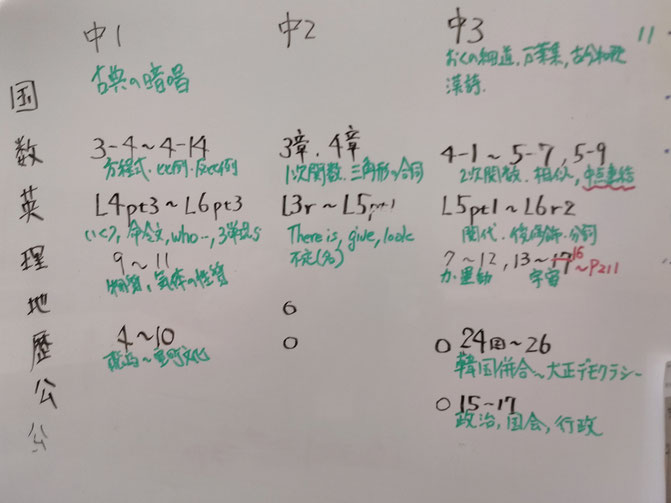 中1 中2 中3 11
国 古典の暗唱 おくの細道,万葉集,古今和歌
漢詩.
数 3-4~4-14 3章.4章 4-1~5-7,5-9
方程式.比例.反比例 1次関数.三角形の合同 2次関数.相似,中点連結
英 L4pt3~L6pt3 L3r~L5pt1 L5pt1~L6r2
いくつ,命令文,who-,3単現s There is,give,look 関代.後修飾.分詞
不定(名)
理 9~11 7~12,13~17 16
物質,気体の性質 力.運動 宇宙 ~P211
地 0
歴 4~10 0 0 24国~26
~室町文化 韓国併合~大正デモクラシー
公 0 15~17
政治,国会,行政